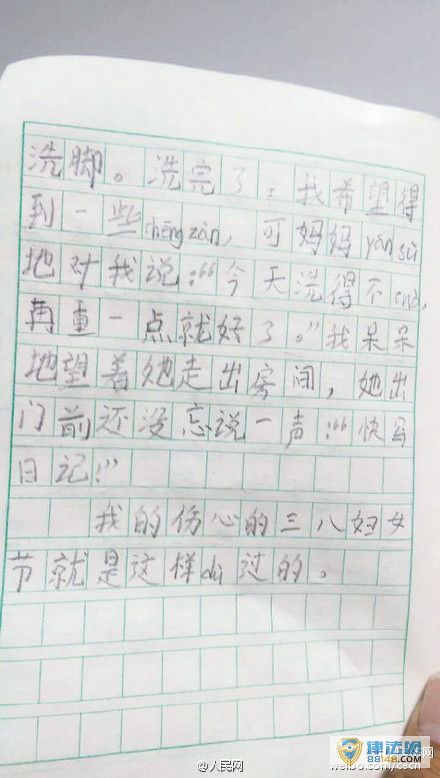 洗脚。洗完了，我希望得
到一些chēngzàn，可妈妈yánsù
地对我说：“今天洗得不cuò，
再重一点就好了。”我呆呆
地望着她走出房间，她出
门前还没忘说一声：“快写
日记！”
我的伤心的三八妇女
节就是这样dù过的。
@人民网
律法网
88148.com
weibo.com/cecn